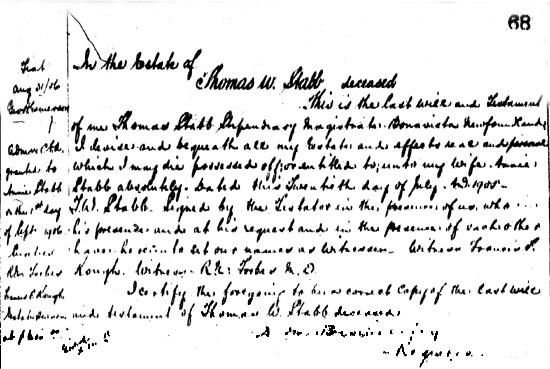 68
In the Estate of
Thomas W. Stabb deceased
This is the last will and Testament
of me Thomas Stabb Stipendiary Magistrate Bonavista Newfoundland
I devise and bequeath all my Estate and effects real and personal
which I may die possessed of or entitled to, unto my wife Annie
Stabb absolutely. Dated this Twentieth day of July A.D. 1905
T.W. Stabb. Signed by the Testator in the presence of us, who in
his presence and at his request and in the presence of each other
have hereunto set our names as witnesses. Witness Francis P.
Kough. Witness R.E. Forbes M.D.
I certify the foregoing to be a correct copy of the last will
and testament of Thomas W. Stabb deceased.
Fiat
Aug 31/06
Admon C.T.A.
granted to
Annie Stabb
on the 1st day
of Sept 1906